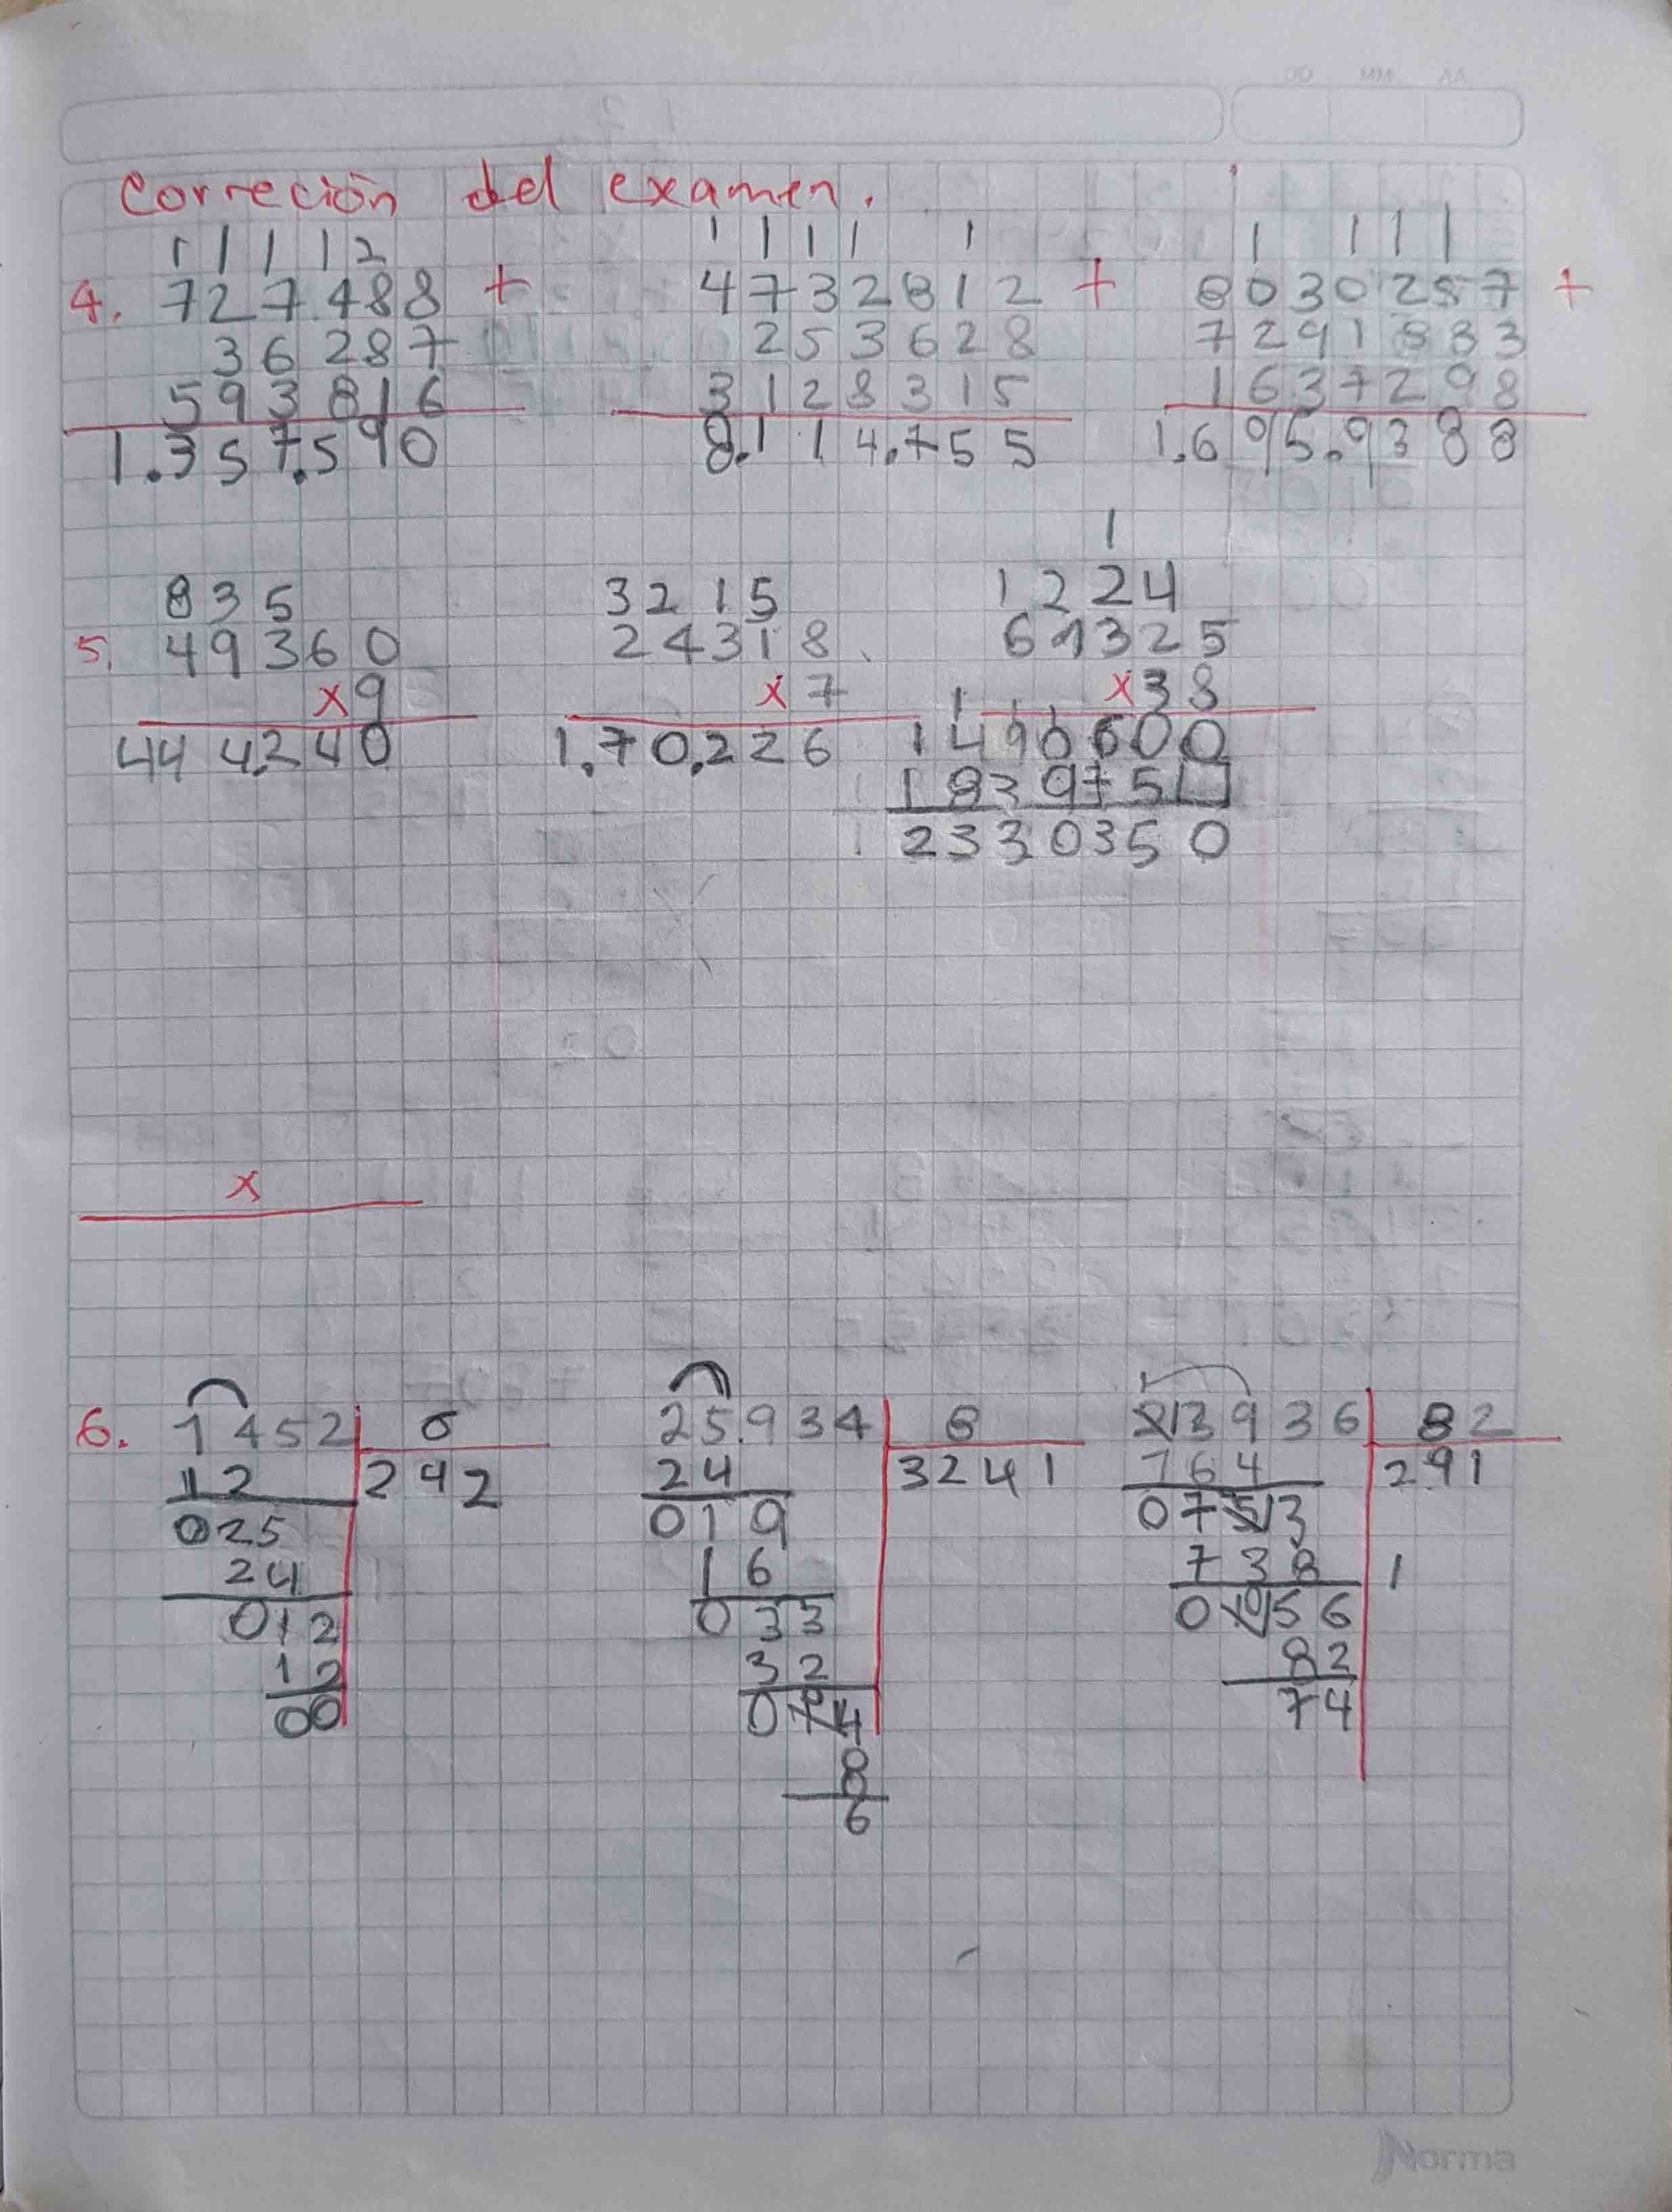 DD MM AA
Correción del examen.
1 1 1 1 2
4. 727.488 +
36 287
593 816
1.357.590
1 1 1 1 1
4732812 +
253628
3128315
8.114.755
1 1 1 1
8030257 +
7291833
1637298
1.695.9388
835
5. 49360
x9
444.240
3215
24318
x 7
1.70.226
1
1224
61325
x38
1 1 1
1490600
183975
2330350
x
6. 1452 6
12 242
025
24
012
12
00
25.934 8
24 3241
019
16
033
32
4
8
6
23936 82
164 291
07513
738 1
056
82
74
Norma